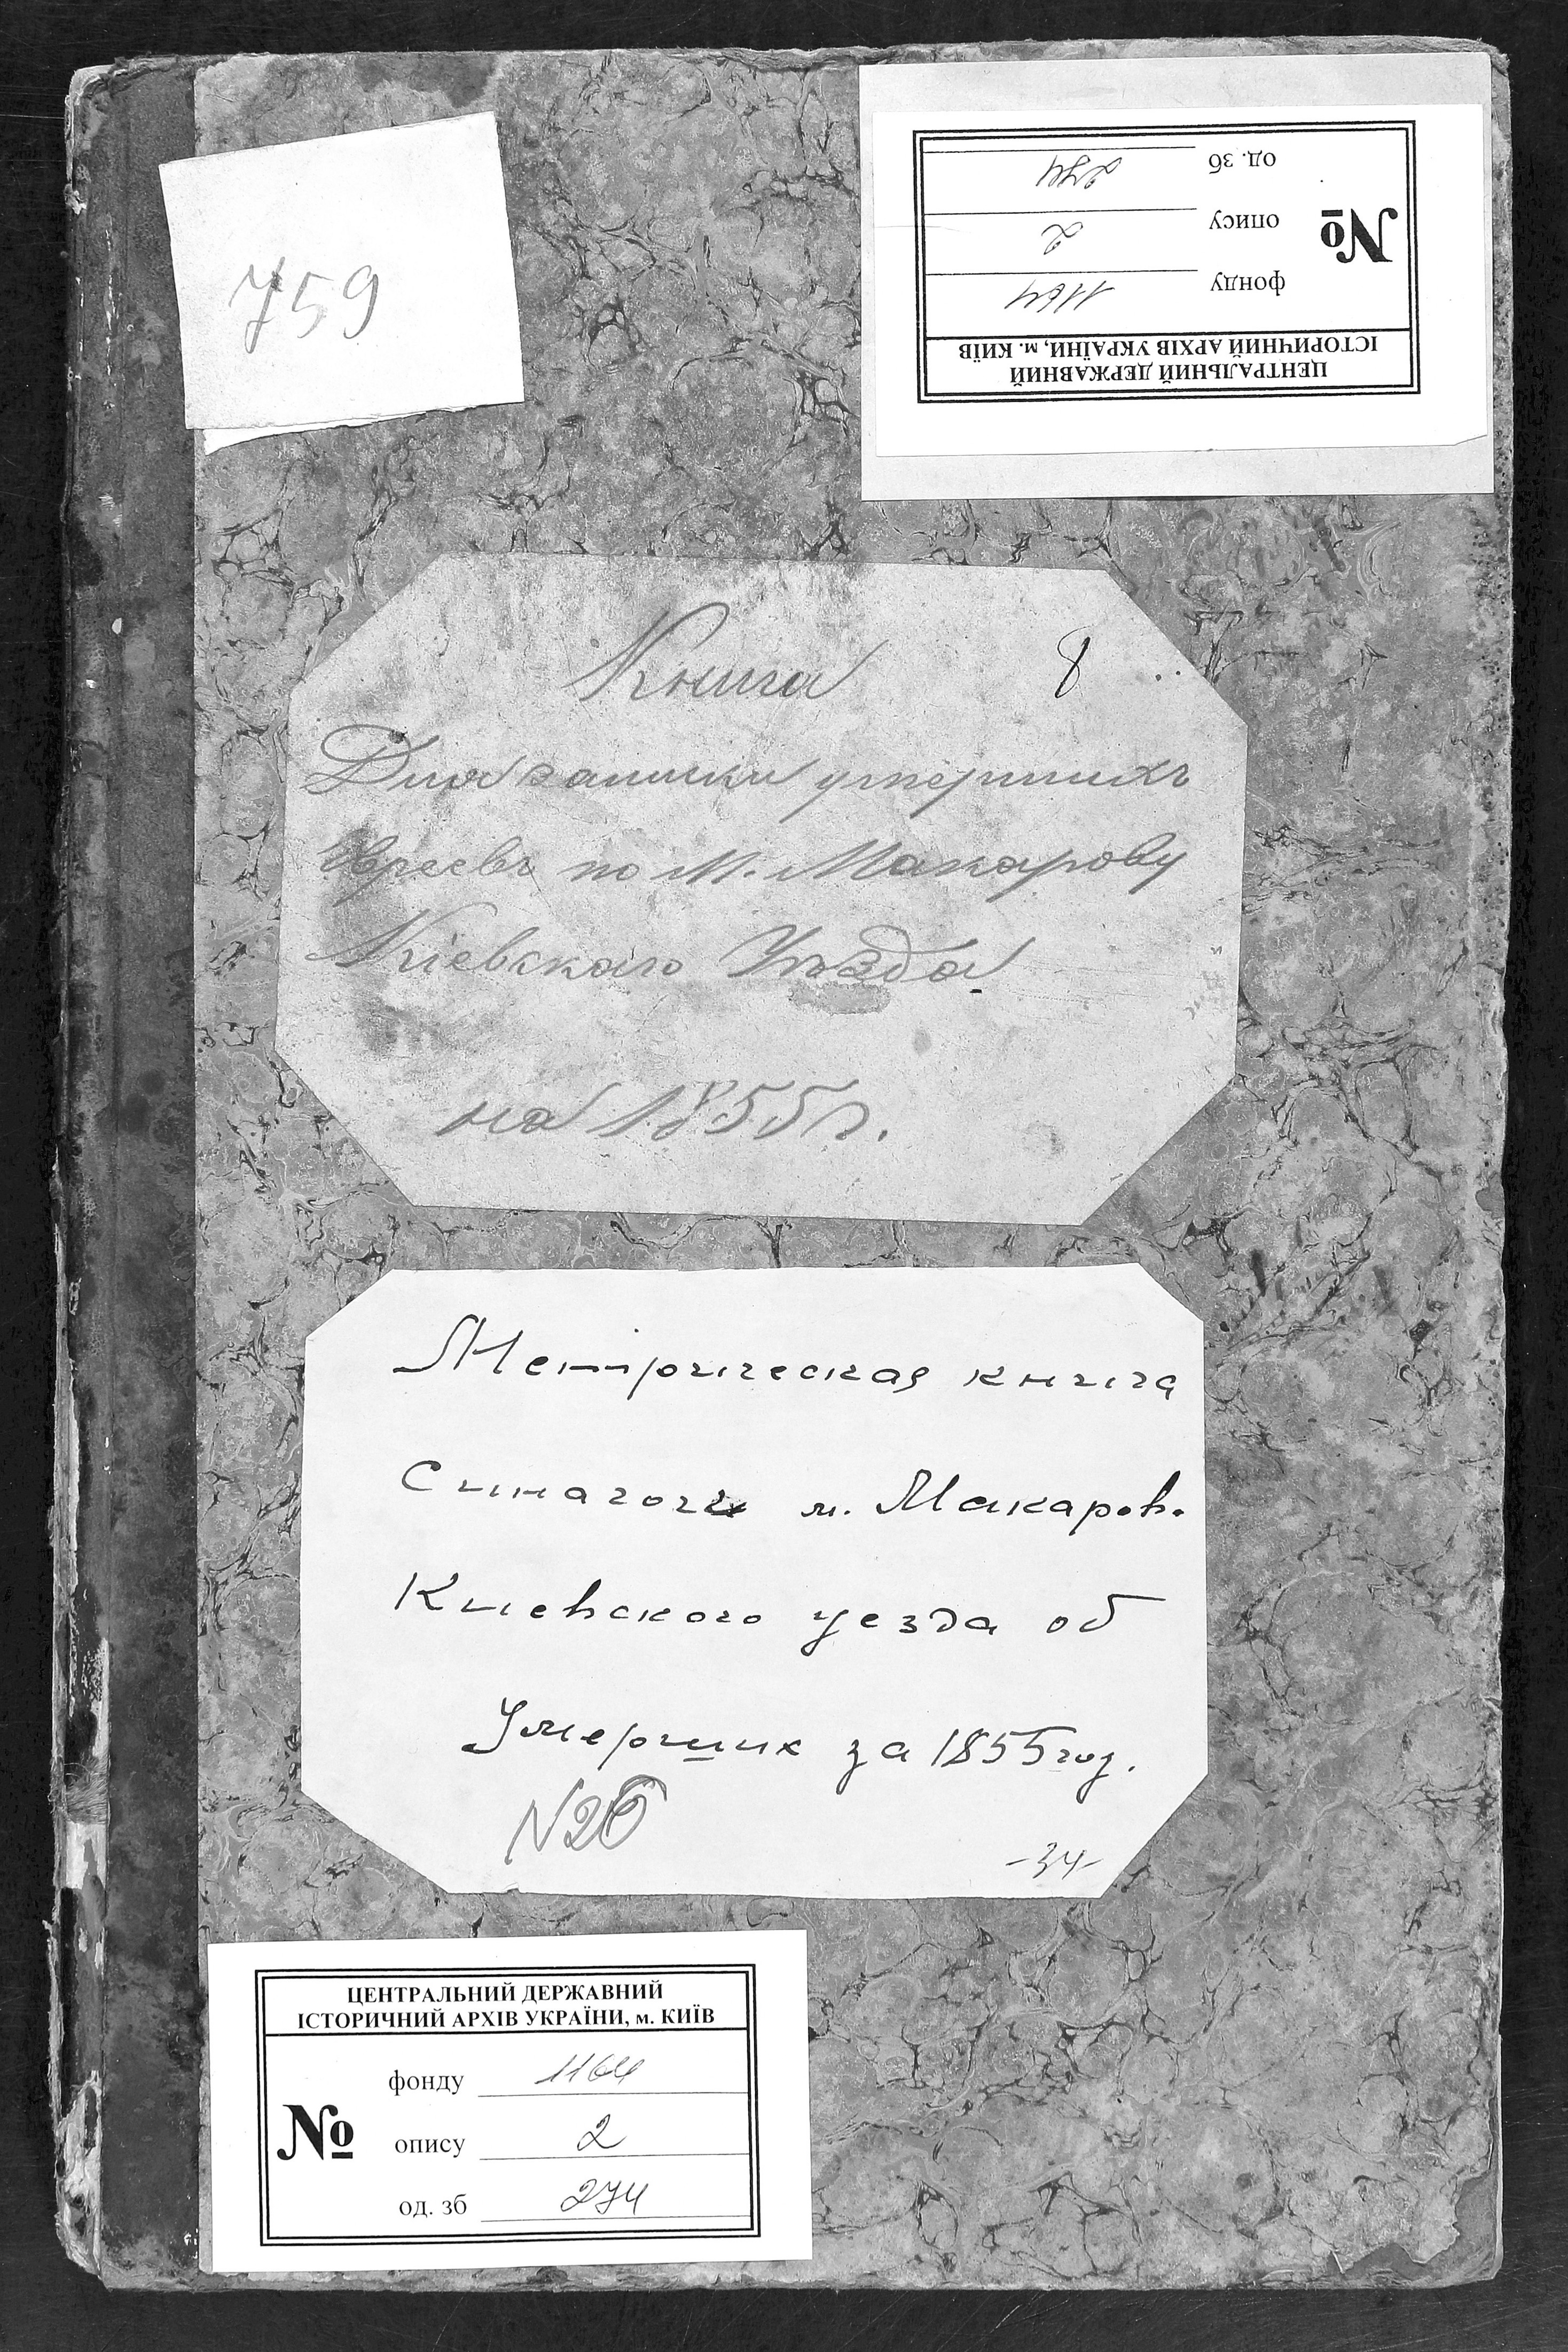 759
ЦЕНТРАЛЬНИЙ ДЕРЖАВНИЙ
ІСТОРИЧНИЙ АРХІВ УКРАЇНИ, м. КИЇВ
№
фонду 1164
опису 2
од. зб 274
Книга 8
Для записки умершихъ
Евреевъ по М. Макарову
Кіевскаго Уѣзда
на 1855 г.
Метрическая книга
Синагоги м. Макаров.
Киевского уезда об
Умерших за 1855 год.
N26
-34-
ЦЕНТРАЛЬНИЙ ДЕРЖАВНИЙ
ІСТОРИЧНИЙ АРХІВ УКРАЇНИ, м. КИЇВ
№
фонду 1164
опису 2
од. зб 274